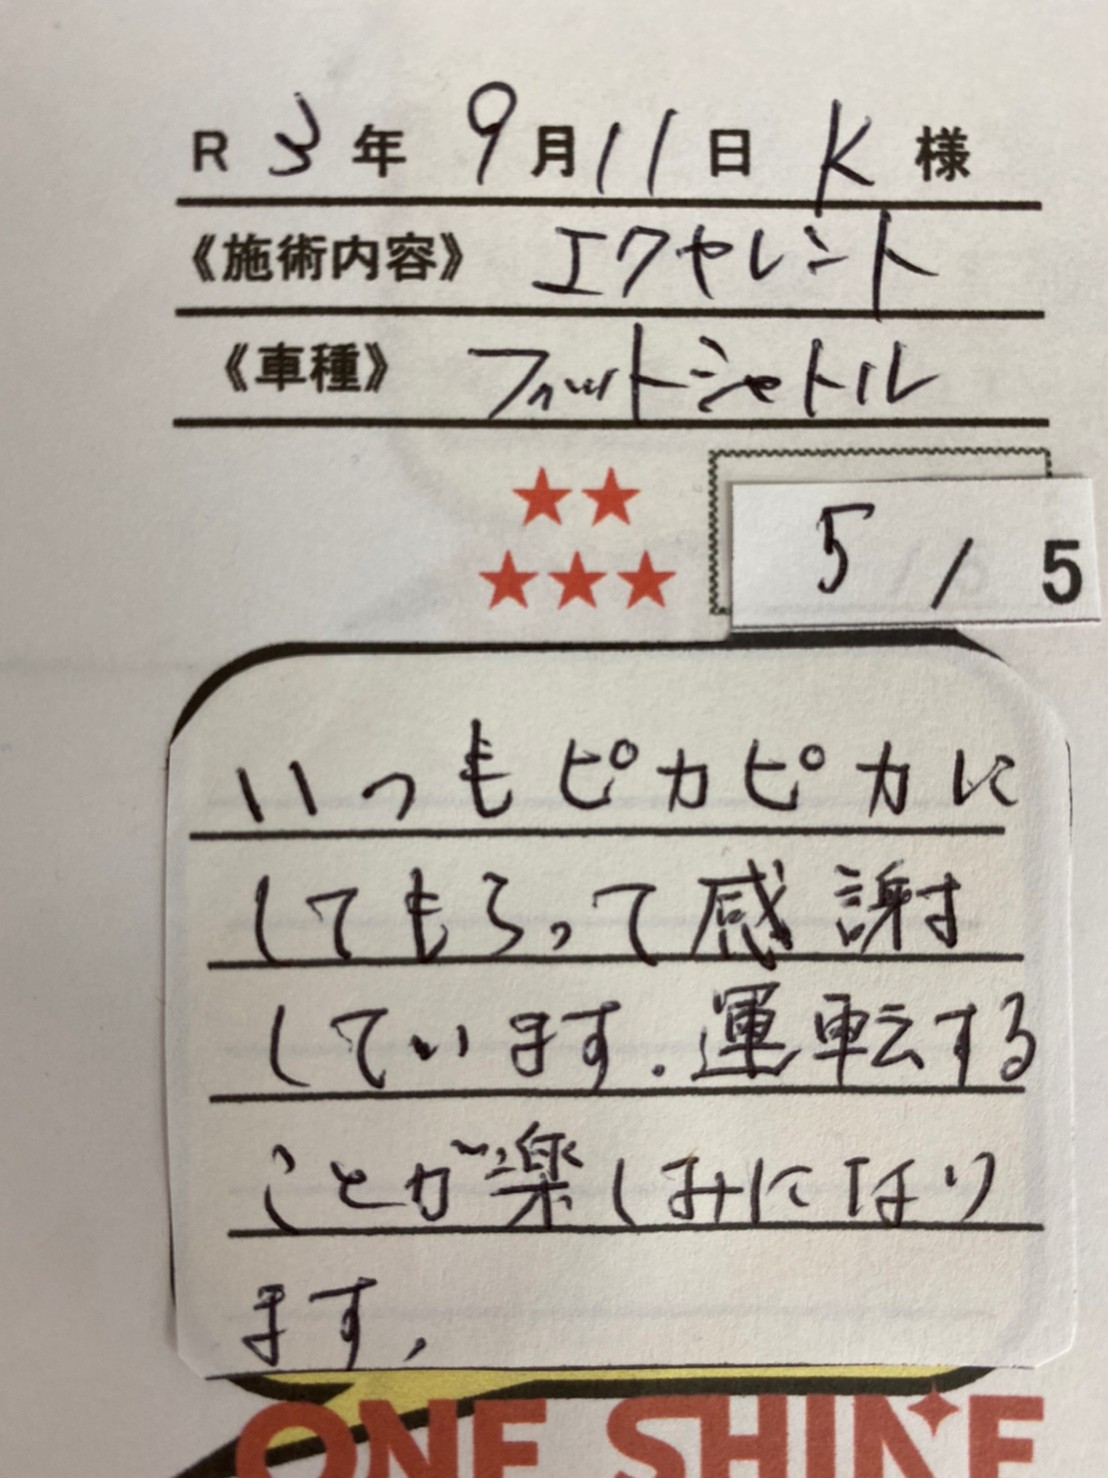 R 3年 9月11日 K 様
《施術内容》 エクセレント
《車種》 フィットシャトル
★★
★★★
5 / 5
いつもピカピカに
してもらって感謝
しています.運転する
ことが楽しみになり
ます.
ONE SHINE